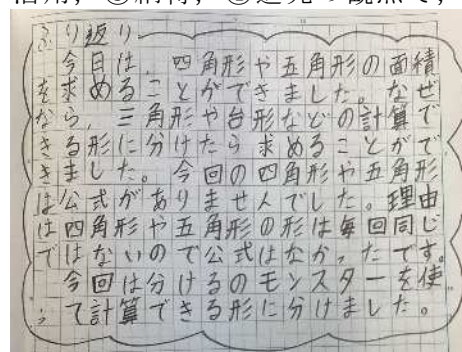 活用，③納得，④追究の観点で，
ふり返り
今日は，四角形や五角形の面積
を求めることができました。なぜ
なら，三角形や台形などの計算で
きる形に分けたら求めることがで
きました。今回の四角形や五角形
は公式がありませんでした。理由
は四角形や五角形の形は毎回同じ
ではないので公式はなかったです。
今回は分けるのモンスターを使
って計算できる形に分けました。